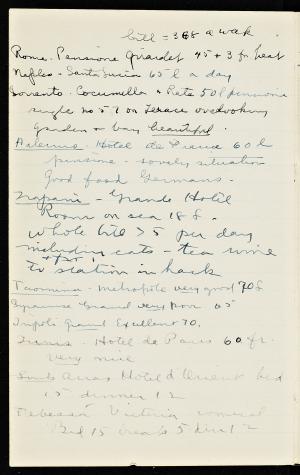 bill = 368 a week
Rome. Pensione Girardet 45 + 3 fr heat
Naples - Santa Lucia 65 l a day
Sorrento. Cocumella & Rete 50 l pensione
single no 57 on Terrace overlooking
garden & bay beautiful.
Palermo - Hotel de France 60 l
pensione - lovely situation
Good food Germans.
Trapani - Grande Hotel
Room on sea 18 f.
whole bill 75 per day
including eats - tea wine
to station in hack
Taormina - Metropole very good 70 l
Syracuse Grand very poor 65
Tripoli Grand Excellent 70.
Tunis - Hotel de Paris 60 fr.
very nice
Souk Arras Hotel d'Orient bed
15 dinner 12
Tebessa Victoria
Bed 15 breakf 5 din 12